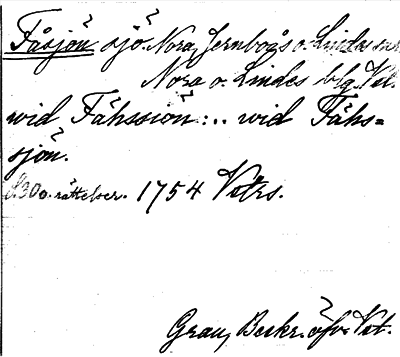 Fåsjön sjö. Nora, Jernboås o. Lindes snr
Nora o. Lindes blg Vstl.
wid Fåhssiön:.. wid Fåhs=
sjön.
S. 300. rättelser. 1754 Vstrs.
Grau, Beskr. öfv. Vstl.